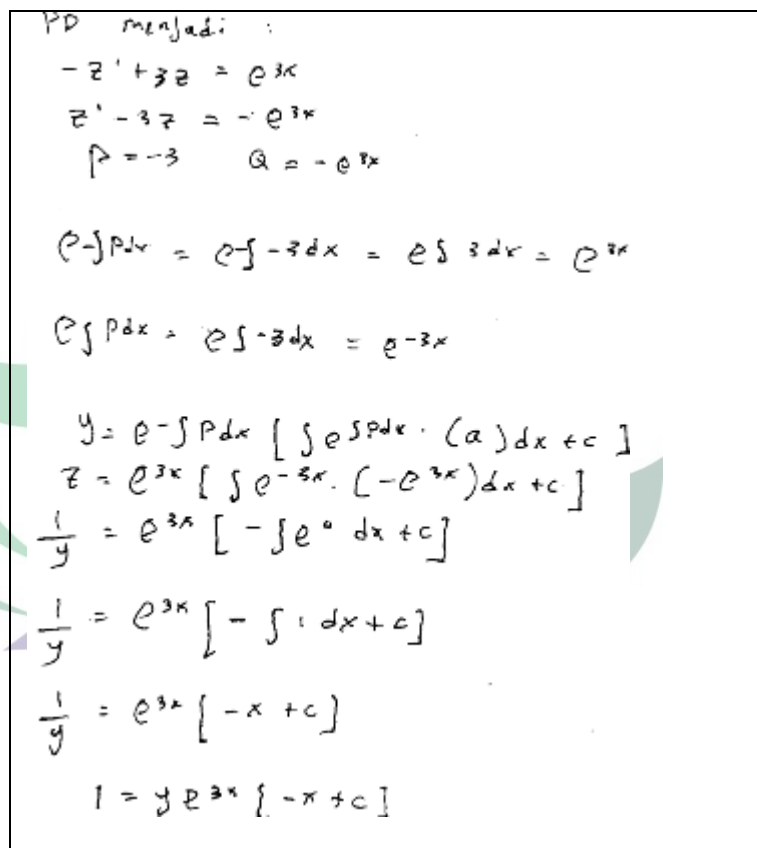 PD menjadi :
-z' + 3z = e^3x
z' - 3z = - e^3x
P = -3 Q = - e^3x
e-∫Pdx = e-∫-3dx = e∫3dx = e^3x
e∫Pdx = e∫-3dx = e^-3x
y = e-∫Pdx [∫e∫Pdx . (Q)dx + c]
z = e^3x [∫e^-3x . (-e^3x)dx + c]
1/y = e^3x [-∫e^0 dx + c]
1/y = e^3x [-∫1 dx + c]
1/y = e^3x [-x + c]
1 = y e^3x [-x + c]